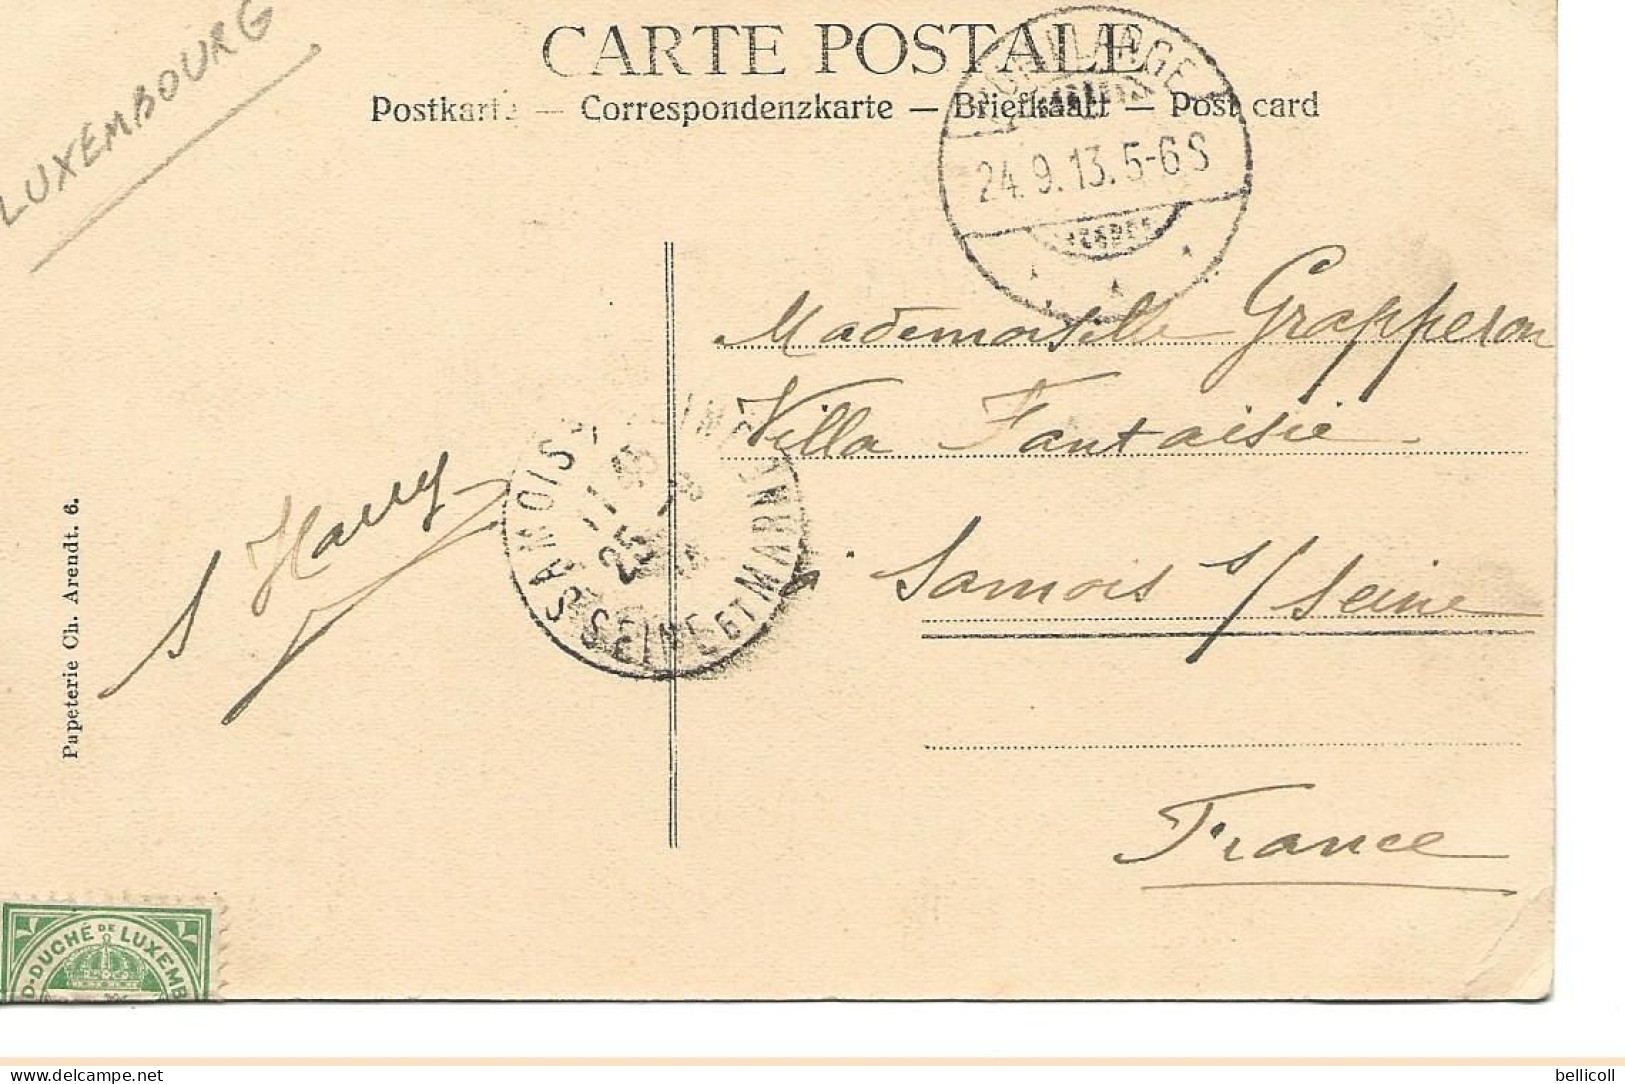 LUXEMBOURG
CARTE POSTALE
Postkarte — Correspondenzkarte — Briefkaart — Post card
24.9.13.5-6S
Mademoiselle Grapperon
Villa Fantaisie
Samois s/ Seine
France
SAMOIS
SEINE ET MARNE
25
Papeterie Ch. Arendt. 6.
D-DUCHÉ DE LUXEMB
bellicoll